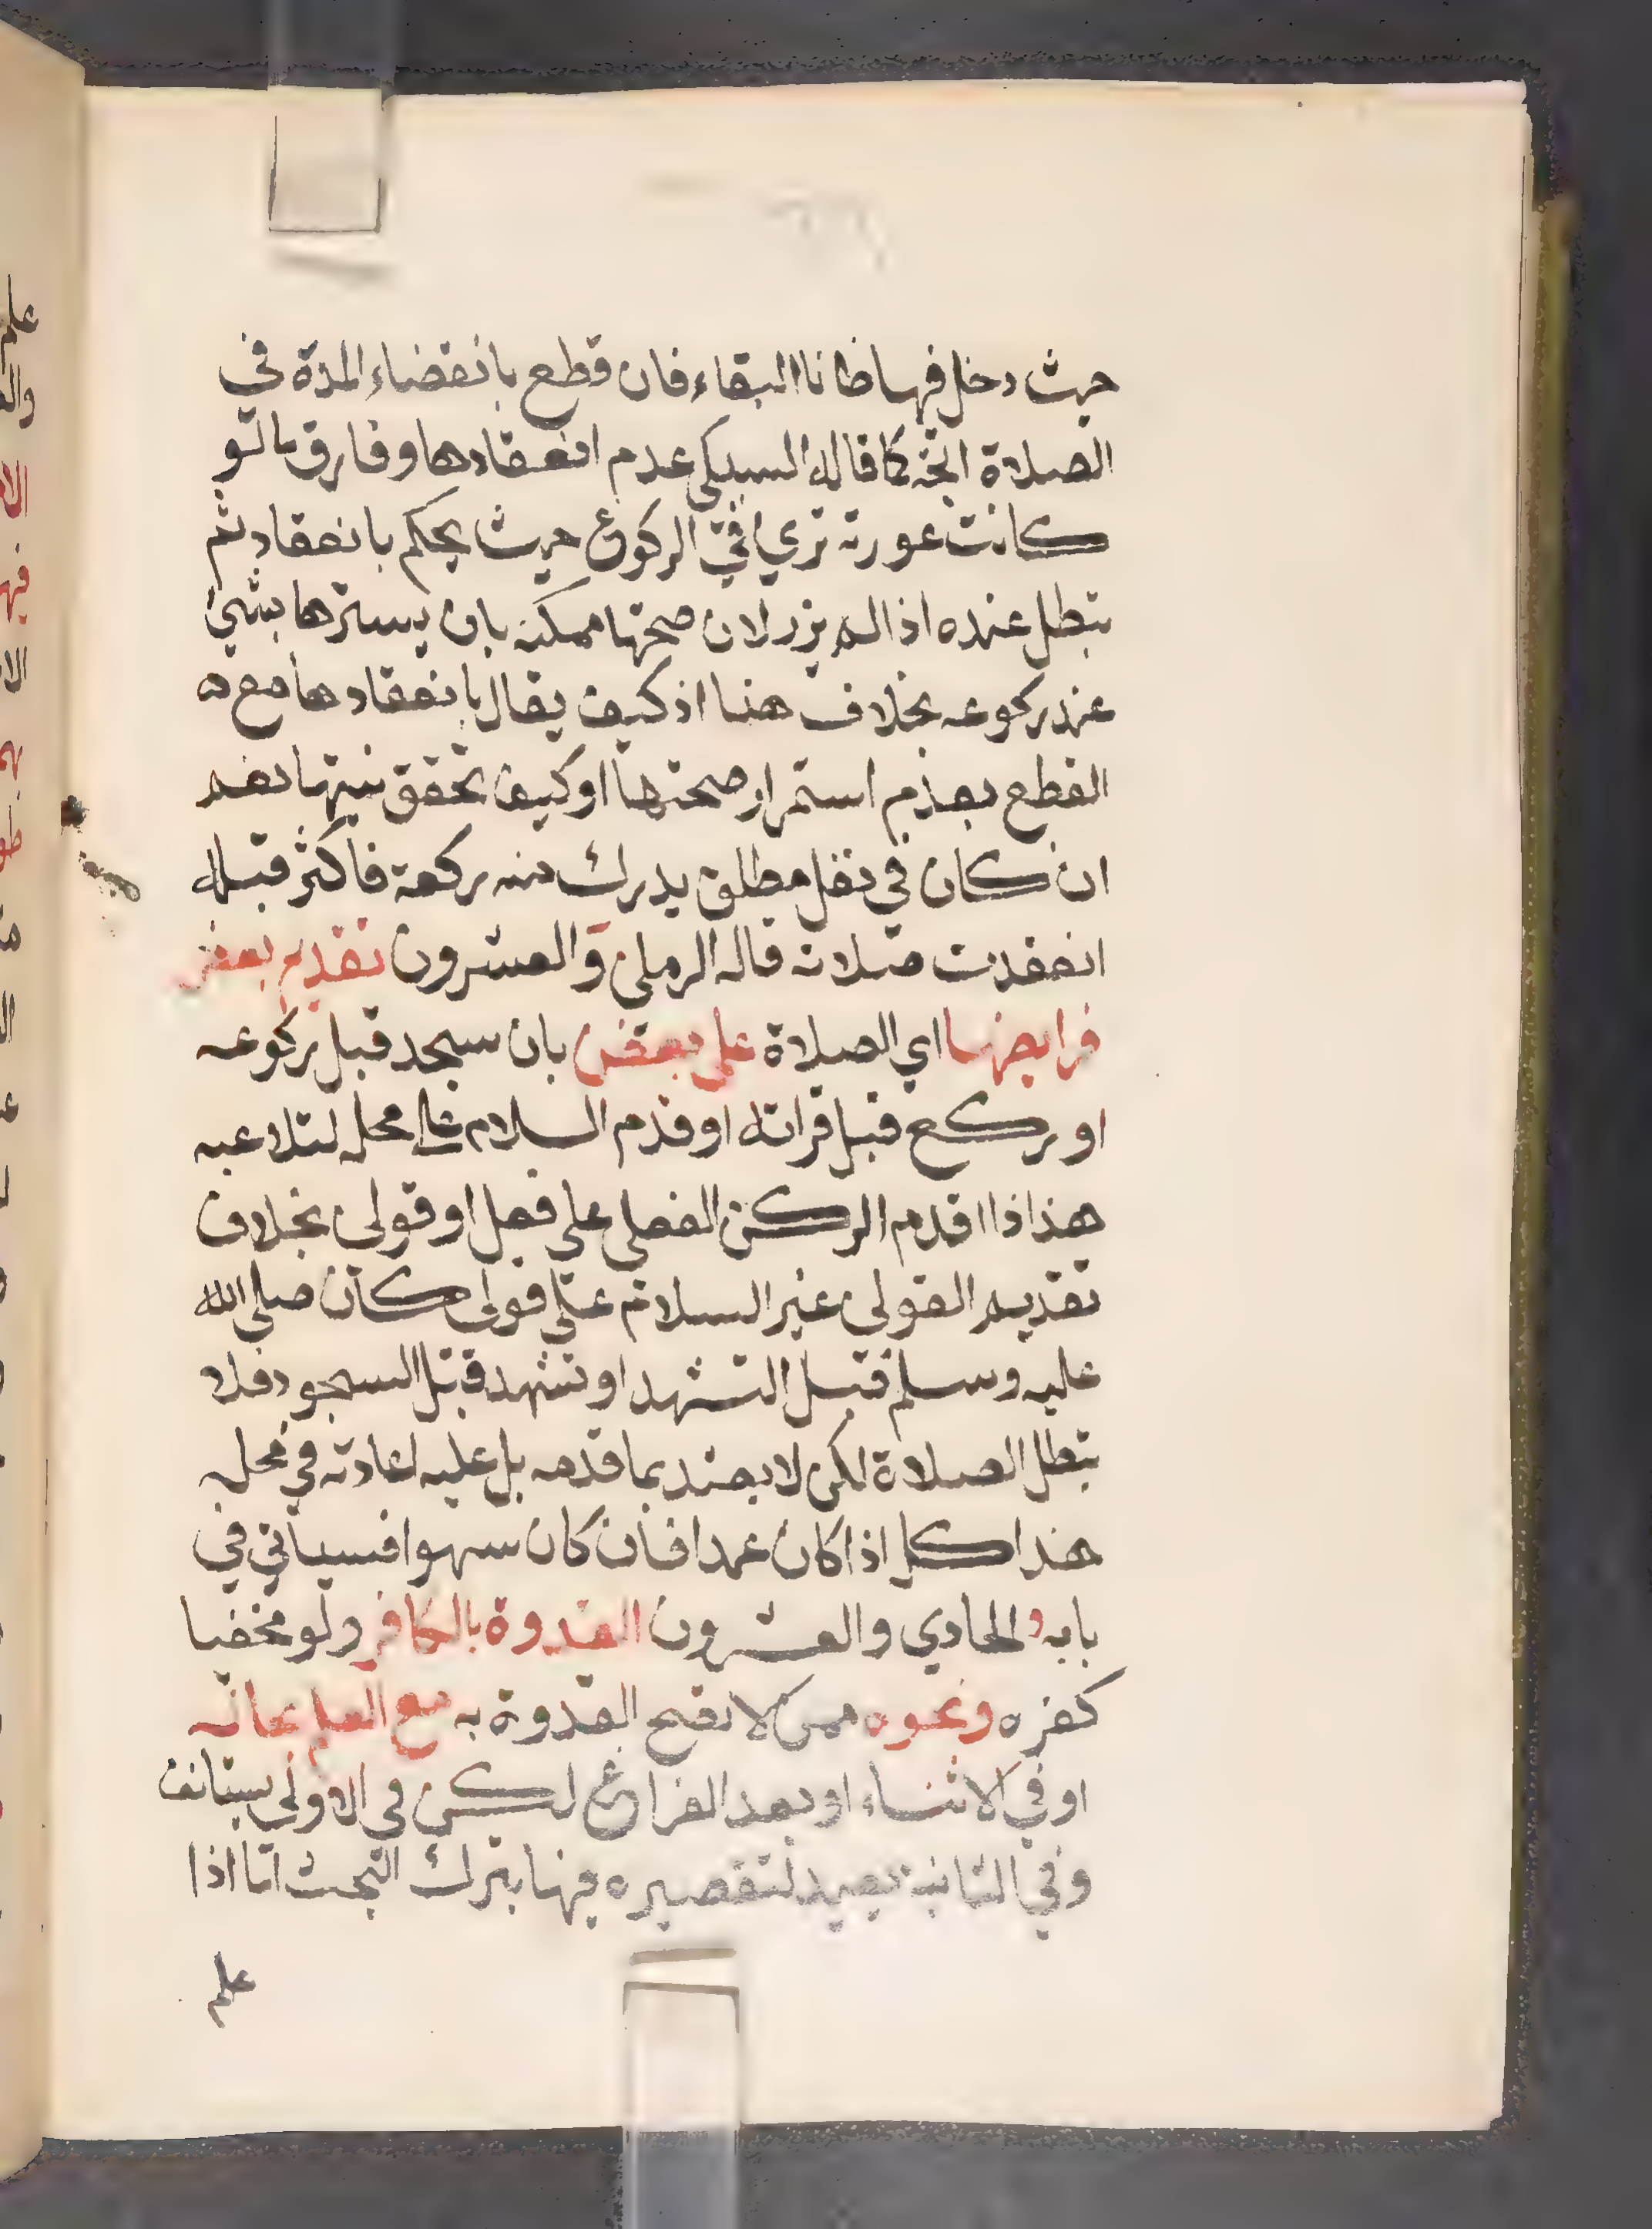 حيث دخل فيها ظانا البقاء فان قطع بانقضاء المدة في
الصلاة اتجه كما قاله السبكي عدم انعقادها وفارق ما لو
كانت عورته تري في الركوع حيث يحكم بانعقاد ثم
تبطل عنده اذا لم يزر لان صحتها ممكنه بان يسترها بشي
عند ركوعه بخلاف هنا اذ كيف يقال بانعقادها مع ه
القطع بعدم استمرار صحتها او كيف تحقق نيتها نعم
ان كان في نفل مطلق يدرك منه ركعة فاكثر قبله
انعقدت صلاته قاله الرملي والعشرون تقديم بعض
فرايضها اي الصلاة على بعض بان سجد قبل ركوعه
او ركع قبل قراته او قدم السلام على محله لتلاعبه
هذا اذا قدم الركن الفعلي علي فعل او قولي بخلاف
تقديم القولي غير السلام على قولي كان صلى الله
عليه وسلم قبل التشهد او تشهد قبل السجود فلا
تبطل الصلاة لكن لا يعتد بما قدمه بل عليه اعادته في محله
هذا كله اذا كان عمدا فان كان سهوا فسياتي في
بابه والحادي والعشرون القدوة بالكافر ولو مخفيا
كفره ونحوه ممن لا تصح القدوة به مع العلم بحاله
او في الاثناء او بعد الفراغ لكن في الاولى يستانف
وفي الثانية يعيد لتقصيره فيها بترك البحث اما اذا
علم